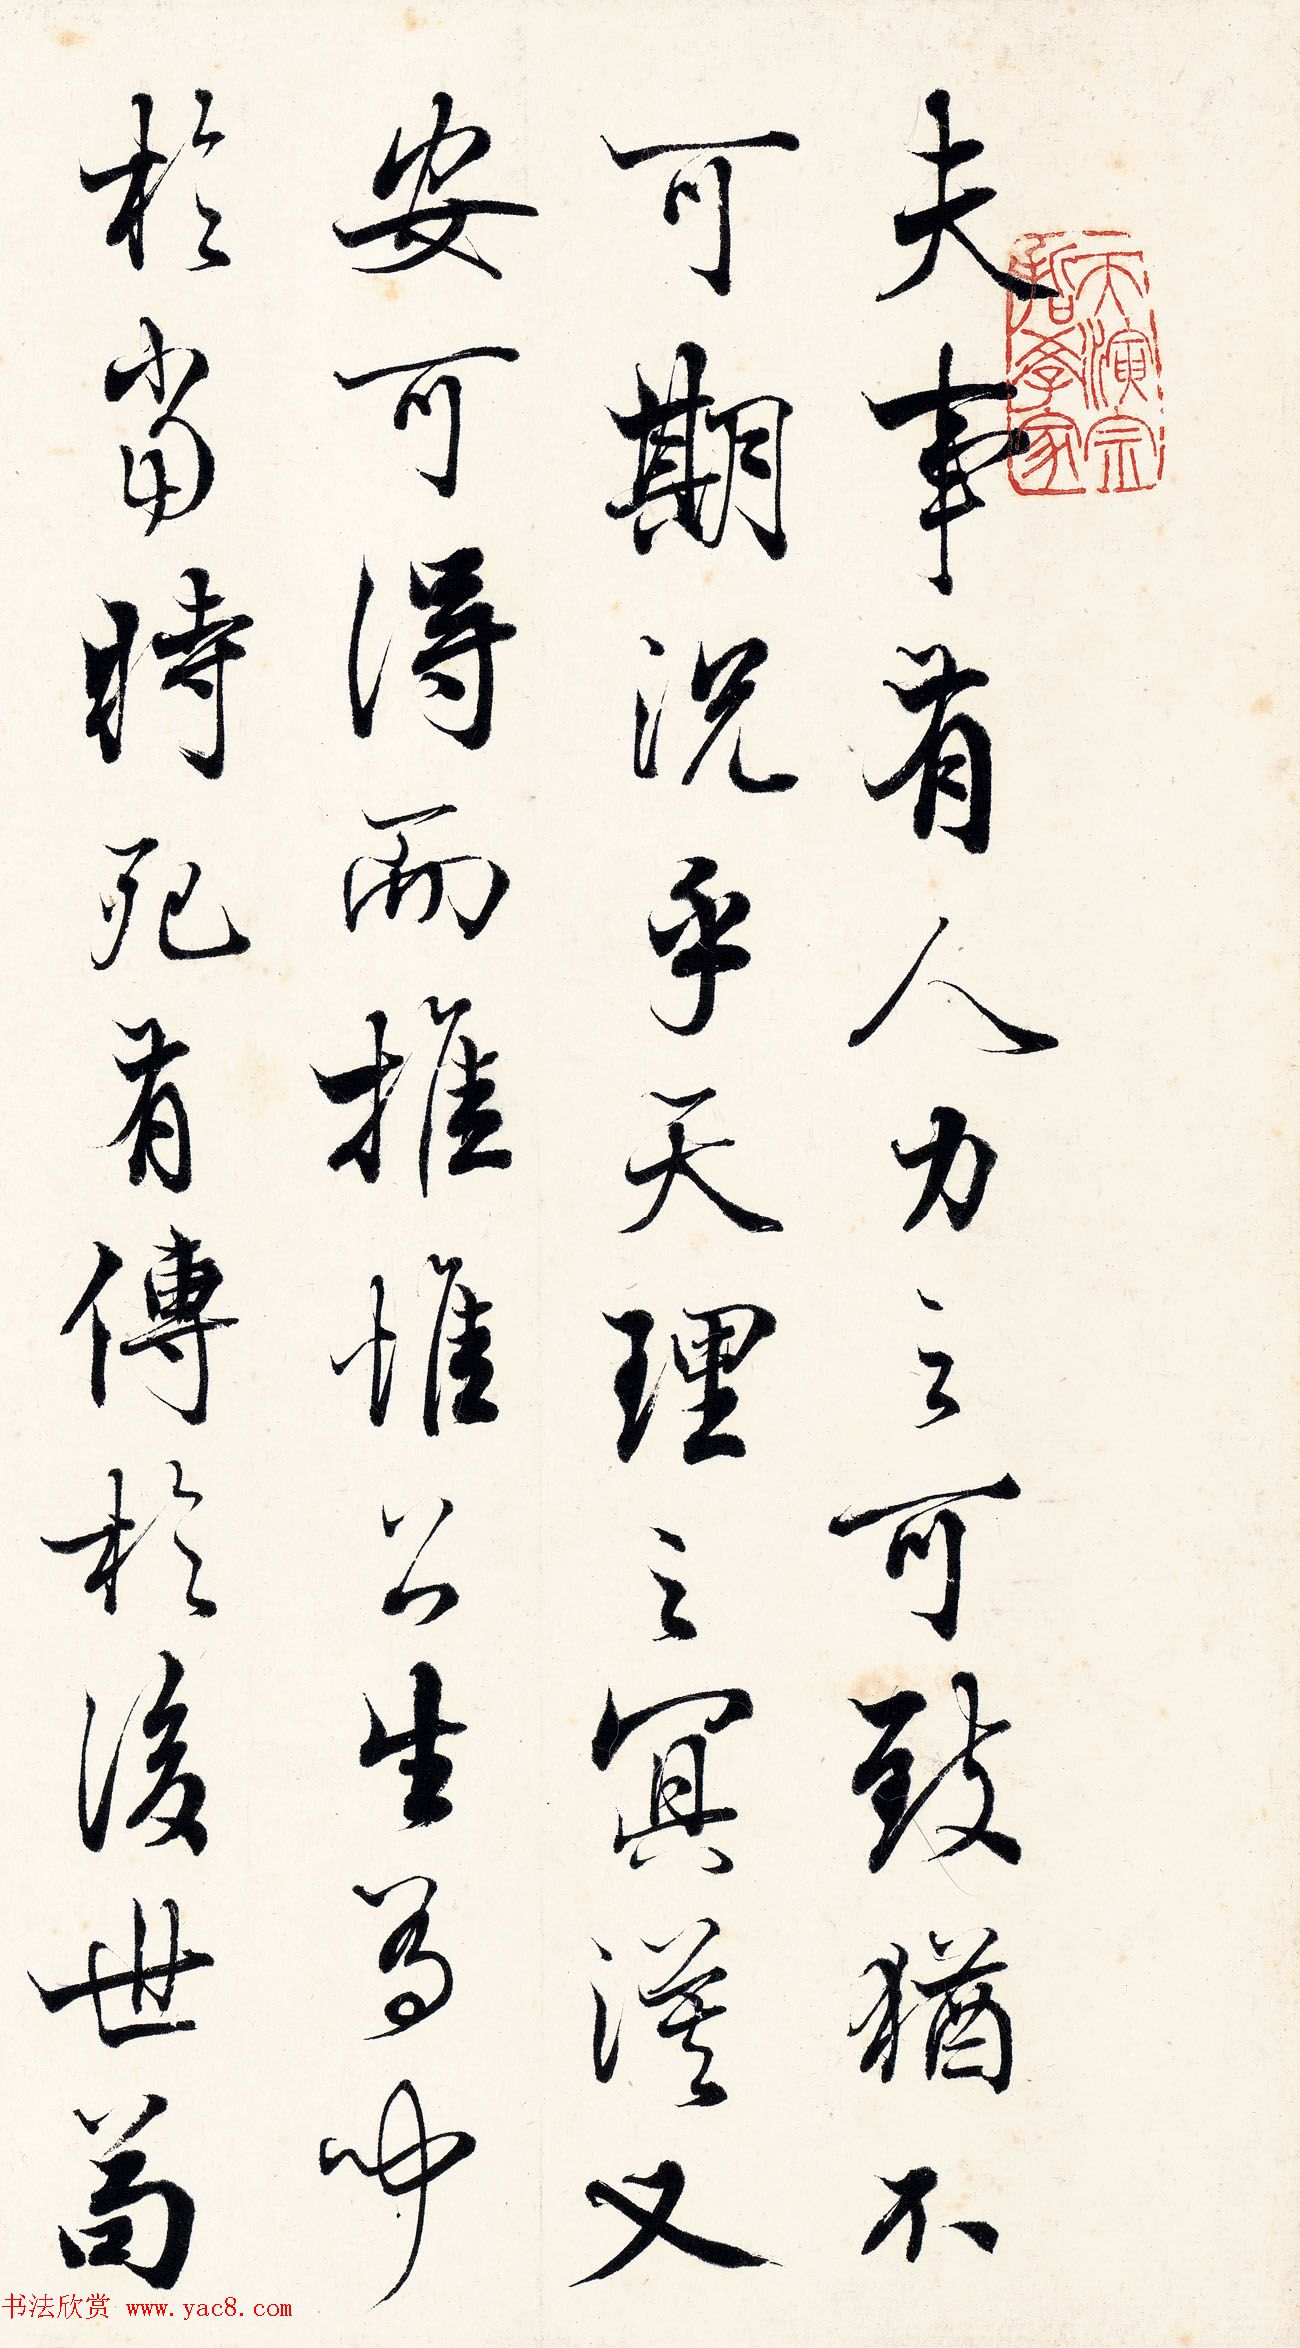 夫事有人力之可致猶不
可期況乎天理之冥漠又
安可得而推惟公生有聞
於當時死有傳於後世茍
天演宗
哲學家
书法欣赏 www.yac8.com